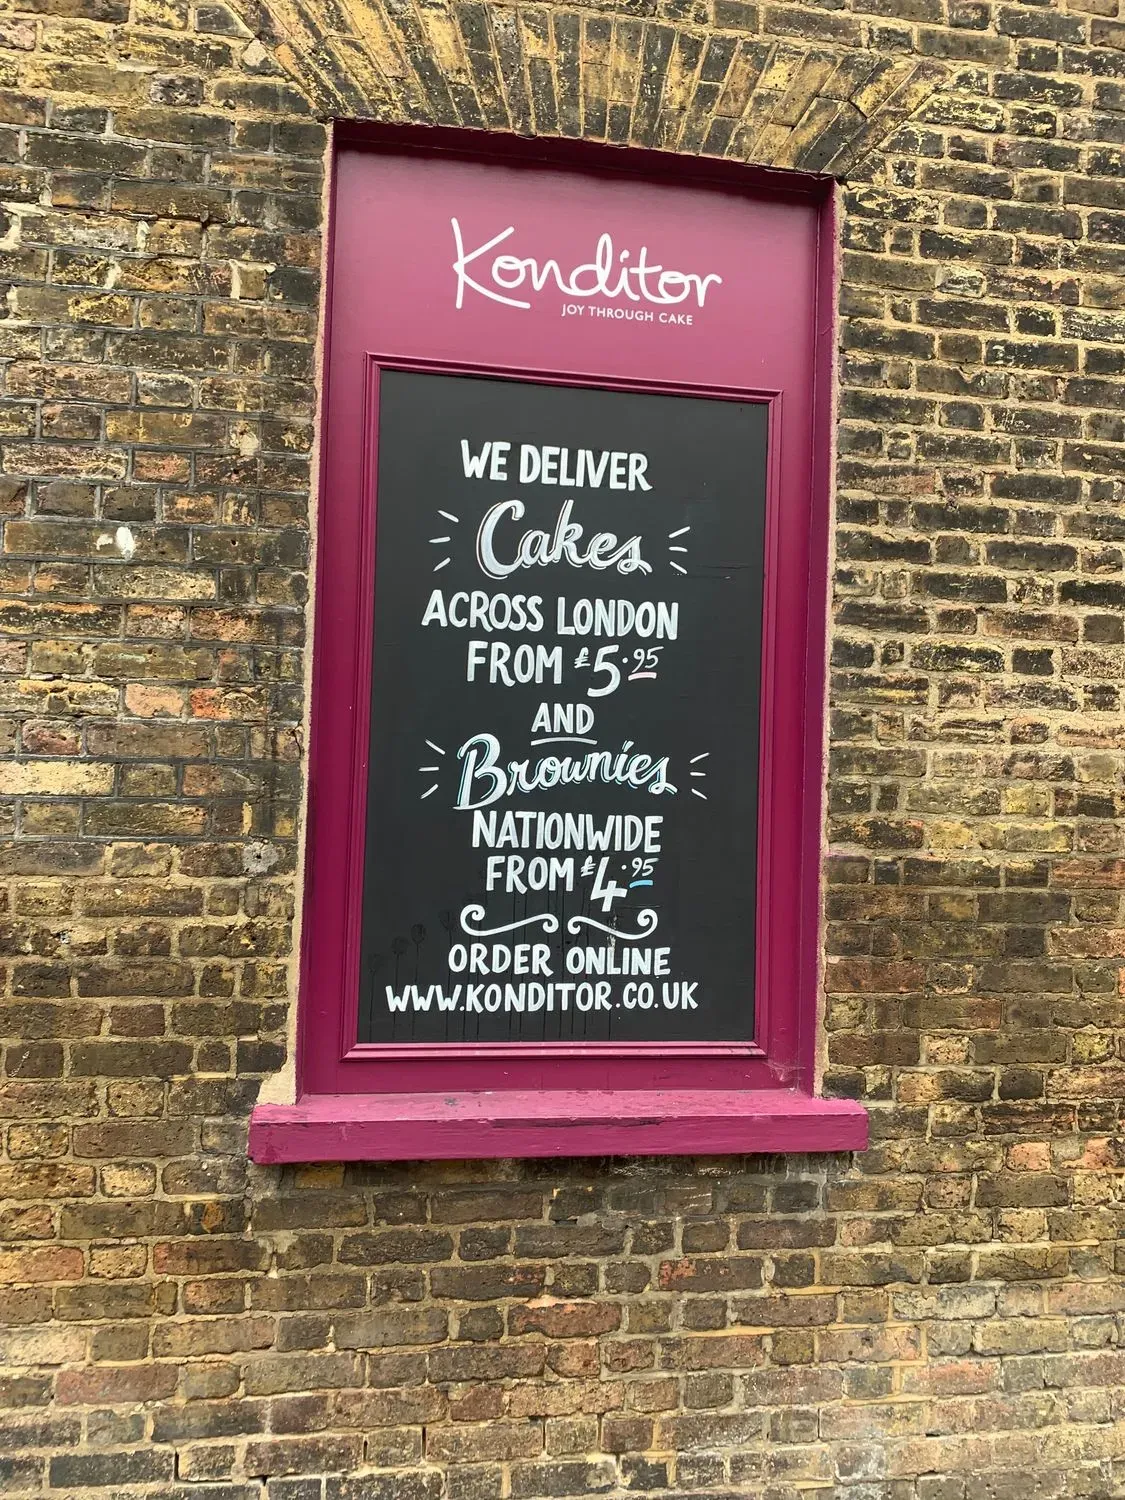 Konditor
JOY THROUGH CAKE
WE DELIVER
Cakes
ACROSS LONDON
FROM £5.95
AND
Brownies
NATIONWIDE
FROM £4.95
ORDER ONLINE
WWW.KONDITOR.CO.UK